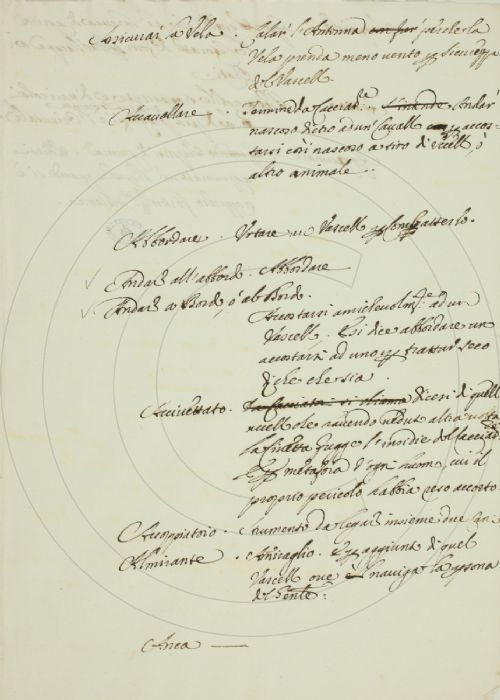 Assicurar la Vela. Calar l'Antenna con far parche la
Vela prenda meno vento p sicurezza
del Vascell.
Accavallare. Termine da Cacciat.re Andar
nascoso dietro ad un Cavall p accos-
tarsi così nascoso a tiro di uccell, ó
altro animale.
Abbordare. Urtare un Vascell p combatterlo.
Andar all'abbord. Abbordare
Andar a Bord, ó ab Bord.
Accostarsi amichevolm.te ad un
Vascell. E si dice abbordare un
accostarsi ad uno p trattar seco
di che che sia.
Accivettato. Da Cacciatori si chiama dicesi di quell
uccell che havendo vedut altra volta
la Civetta fugge l'insidie del Cacciad.
E p metafora d'ogn'huomo, cui il
proprio pericolo habbia reso accorto.
Accoppiatoio. Strumento da legar insieme due
Almirante. Amiraglio. E p aggiunt di quel
Vascell ove naviga la persona
del Gen.le:
Anca